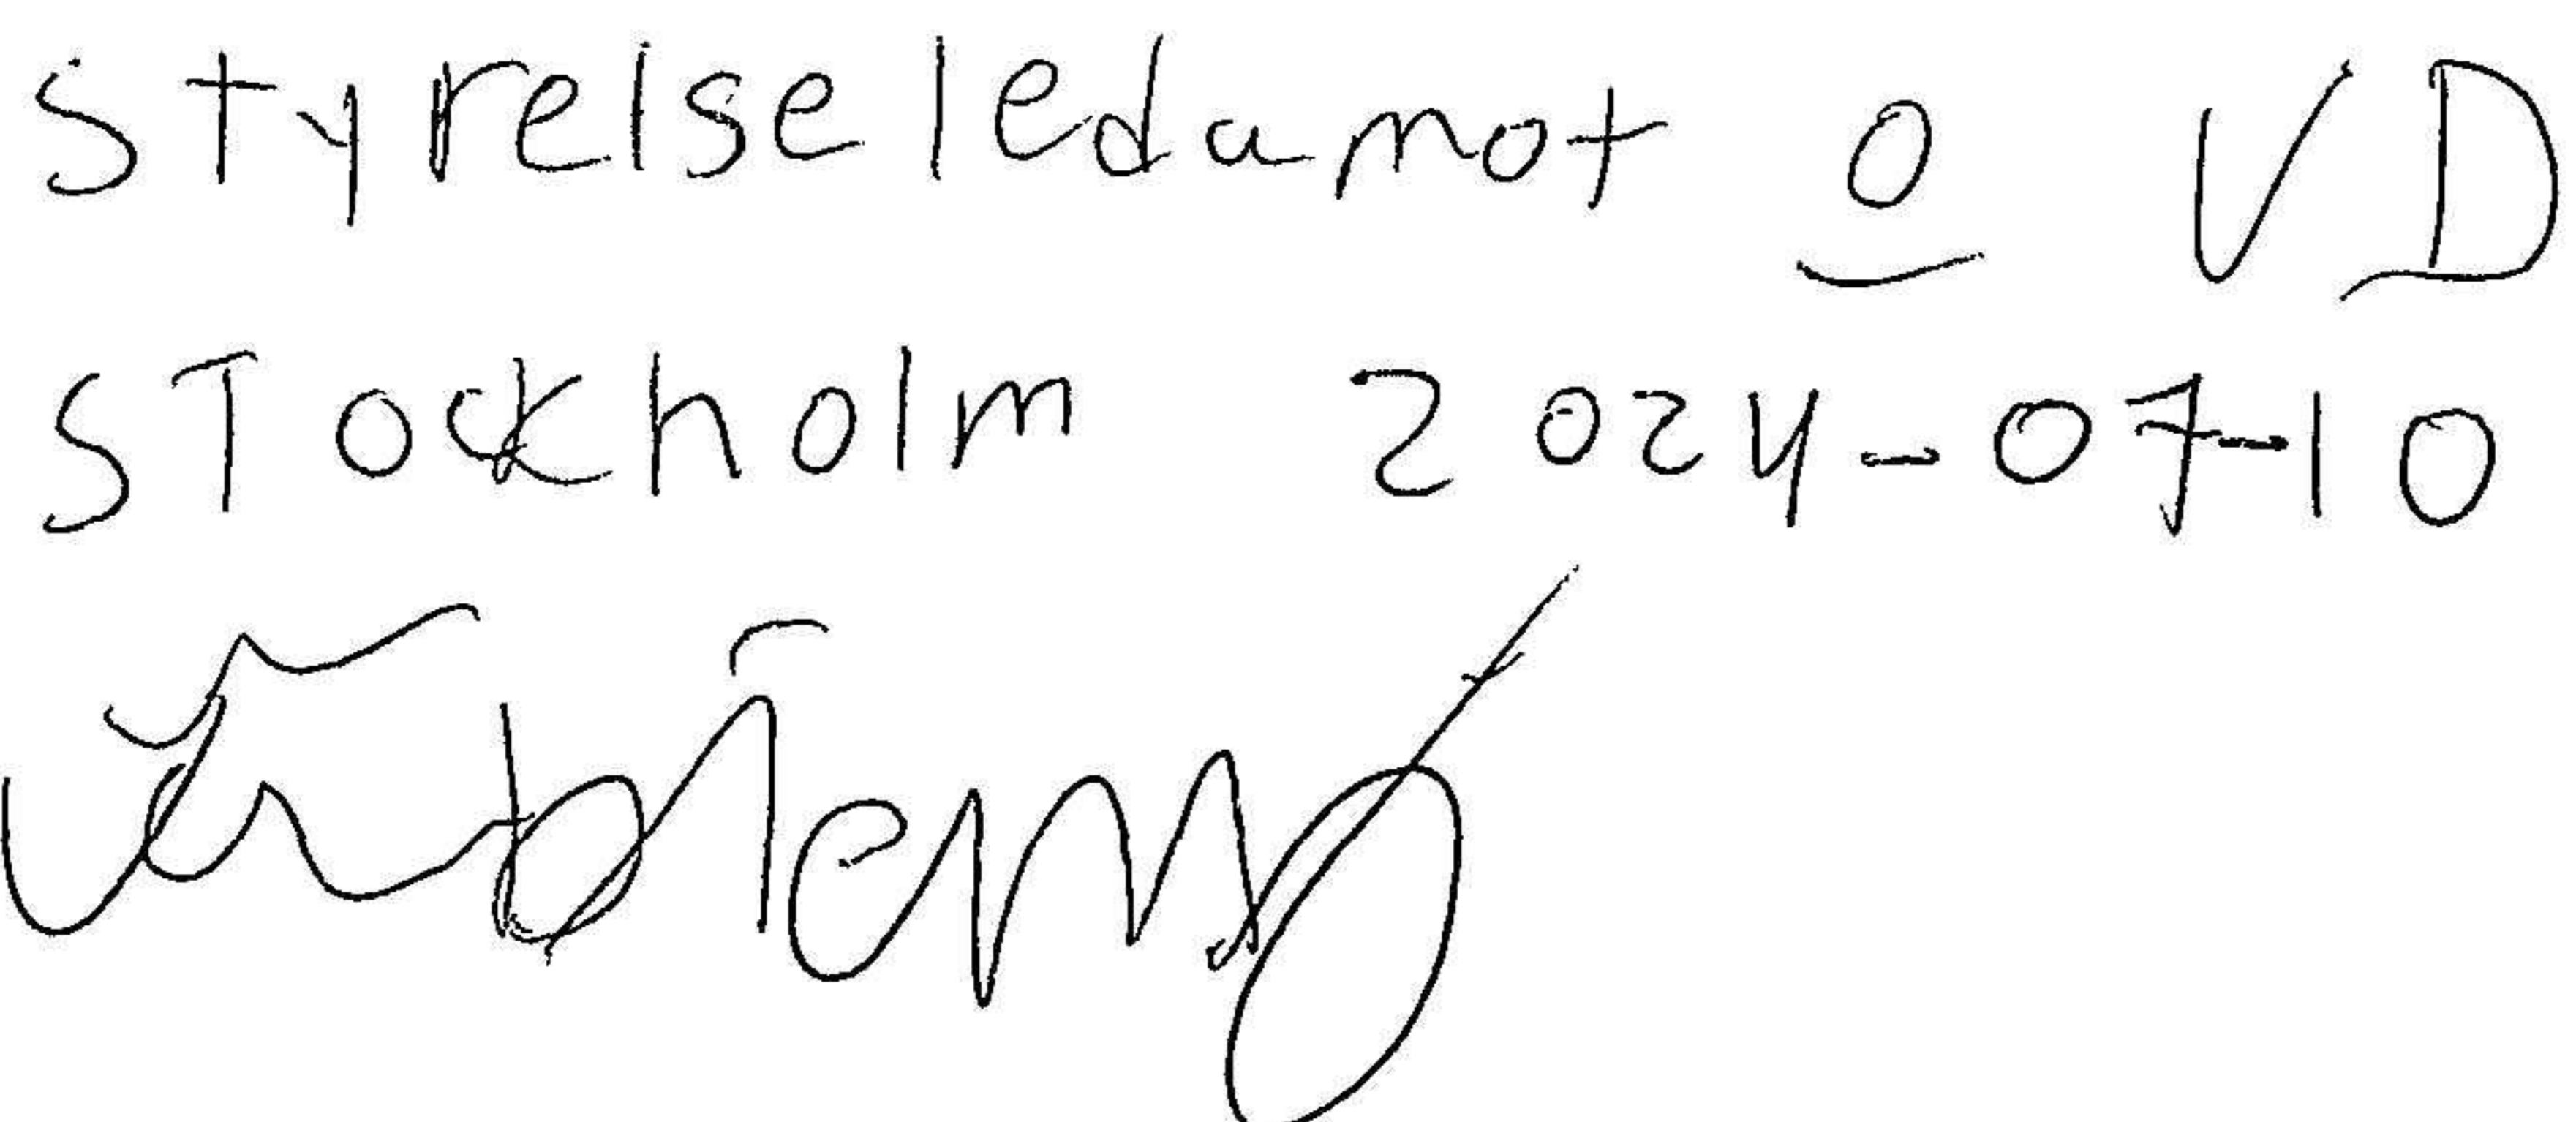 Styrelseledamot o VD
STockholm 2024-07-10